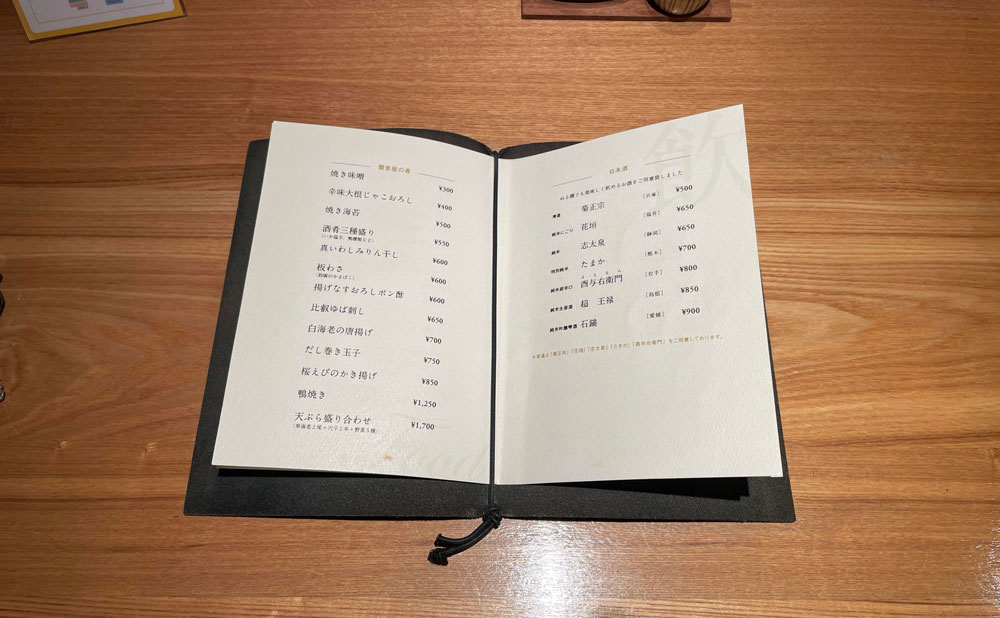 蕎麦屋の肴
焼き味噌 ¥300
辛味大根じゃこおろし ¥400
焼き海苔 ¥500
酒肴三種盛り ¥550
真いわしみりん干し ¥600
板わさ ¥600
揚げなすおろしポン酢 ¥600
比叡ゆば刺し ¥650
白海老の唐揚げ ¥700
だし巻き玉子 ¥750
桜えびのかき揚げ ¥850
鴨焼き ¥1,250
天ぷら盛り合わせ ¥1,700
飲
日本酒
ぬる燗でも美味しく飲めるお酒をご用意致しました
清酒 菊正宗 [兵庫] ¥500
純米にごり 花垣 [福井] ¥650
純米 志太泉 [静岡] ¥650
特別純米 たまか [栃木] ¥700
純米超辛口 酉与右衛門 [岩手] ¥800
純米生原酒 超 王禄 [島根] ¥850
純米吟醸雫酒 石鎚 [愛媛] ¥900